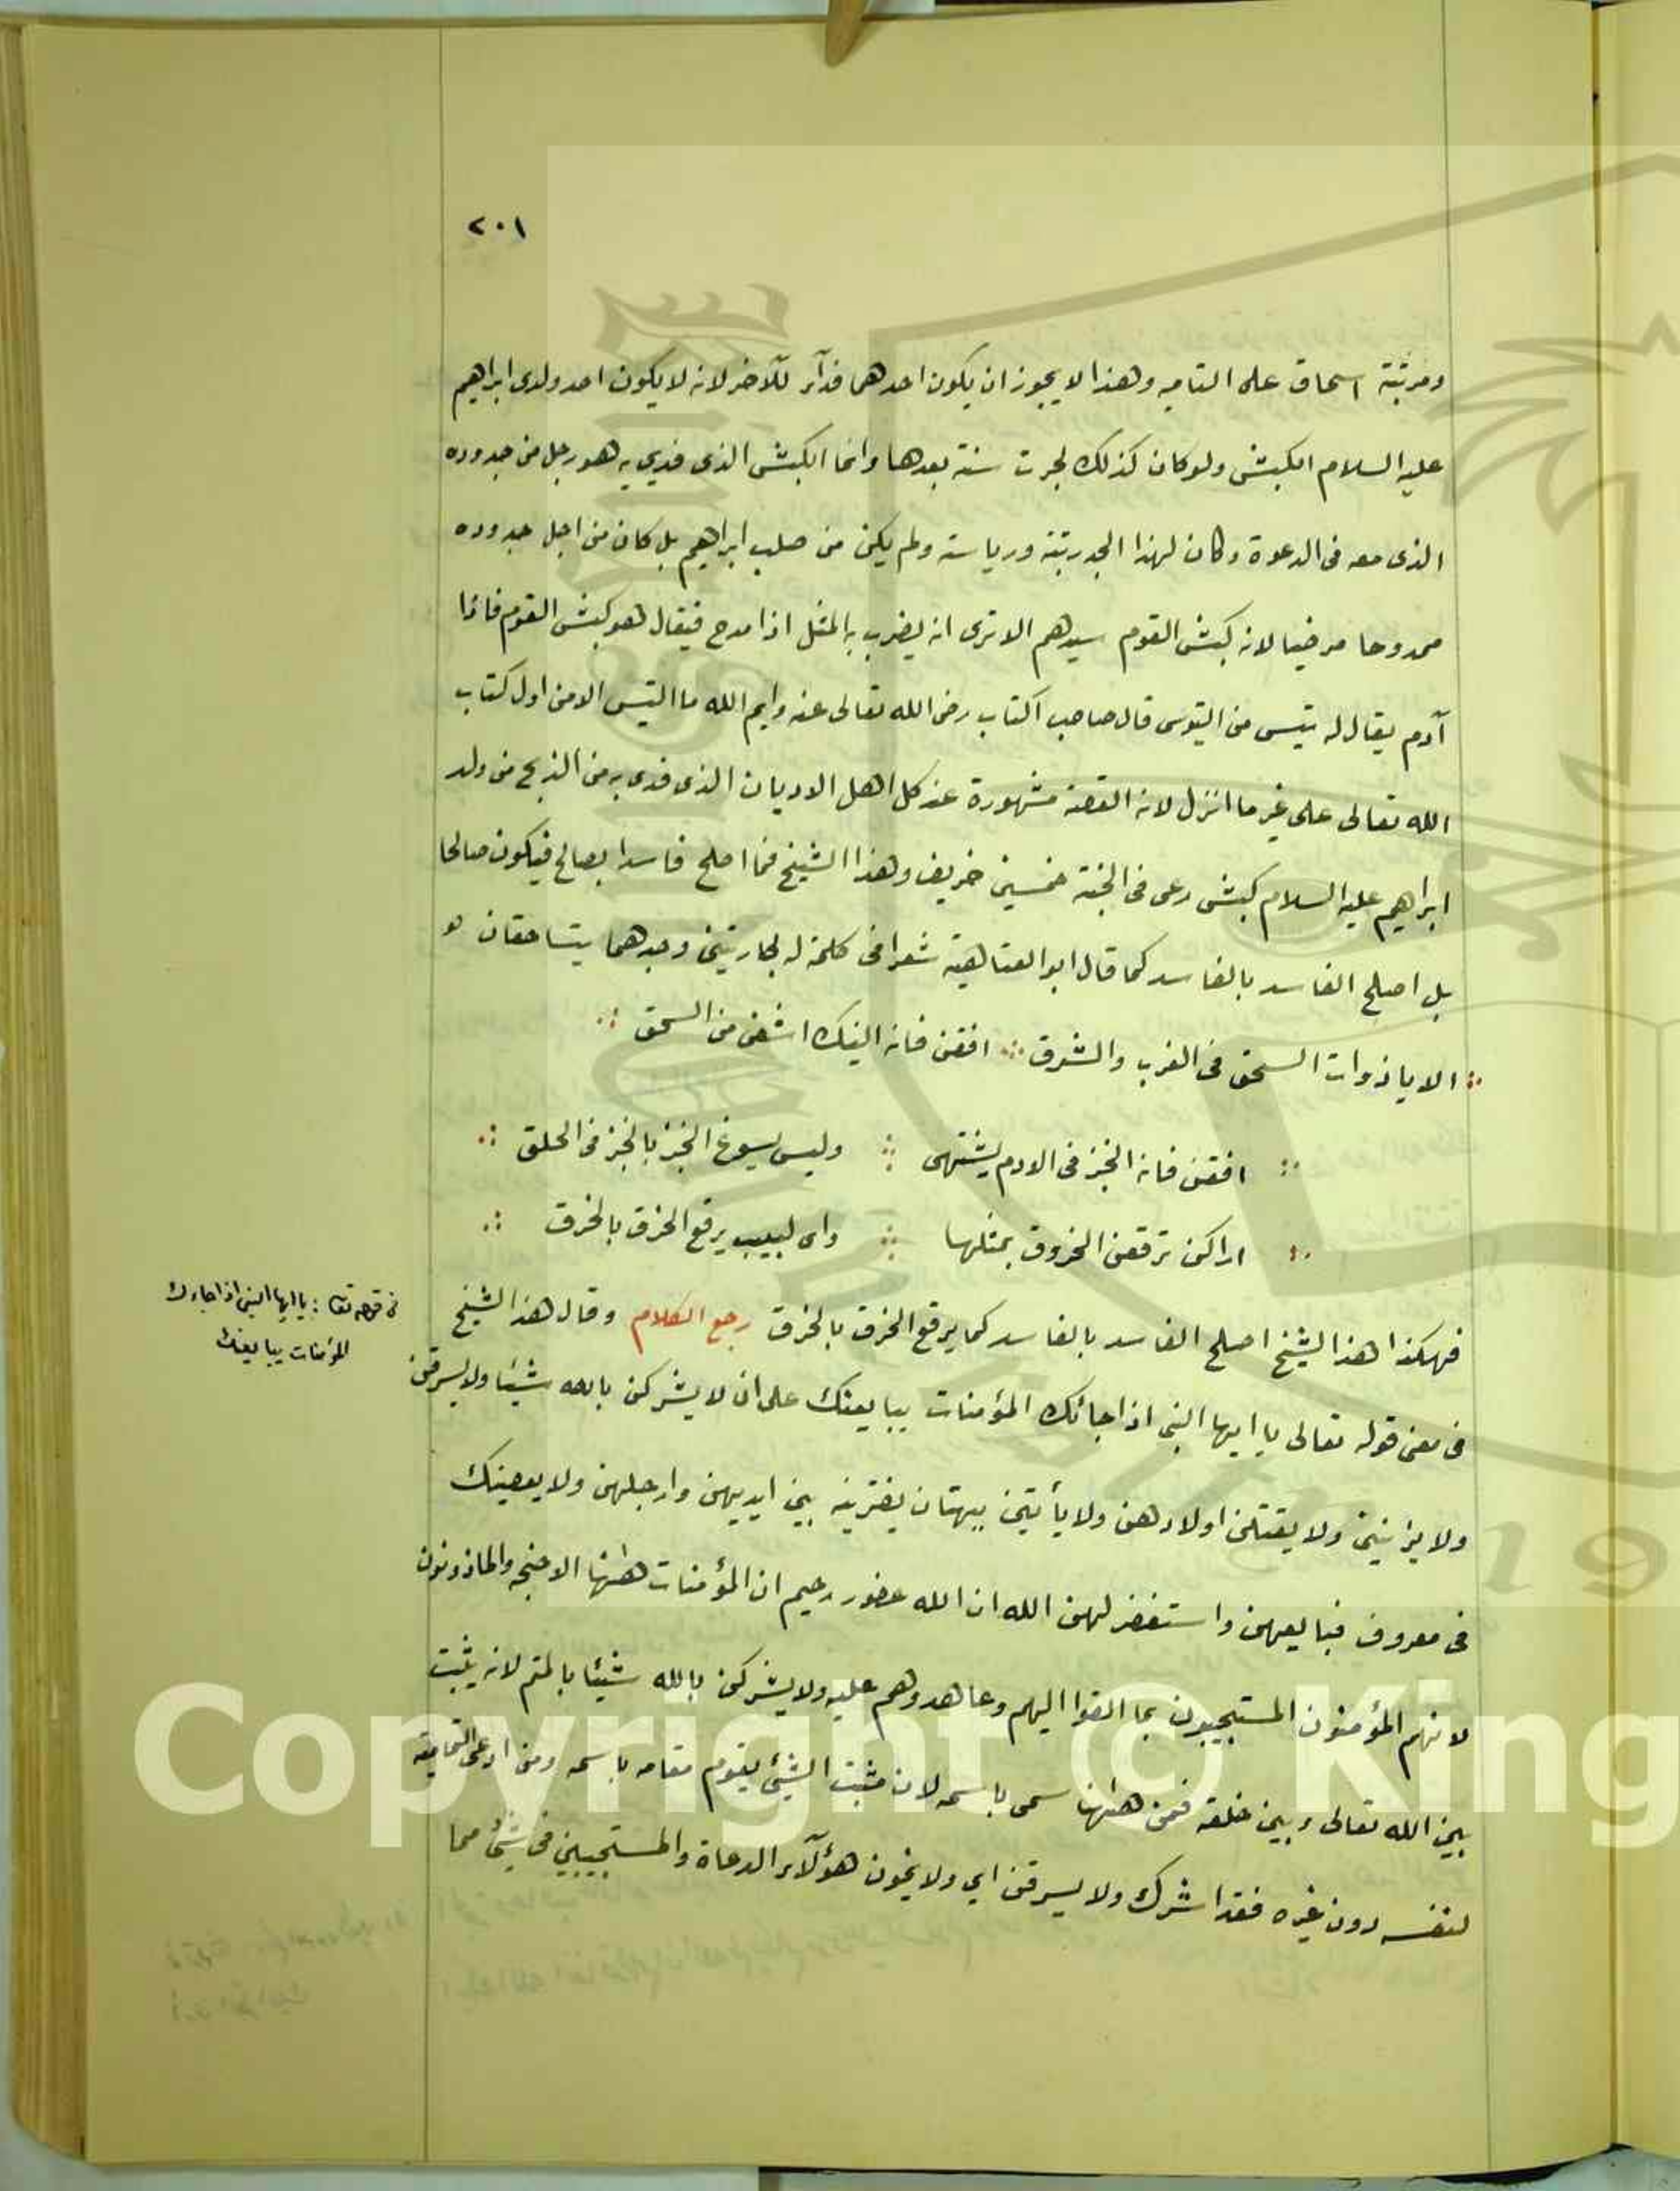 ٢٠١
ومرتبة اسحاق على التمامية وهذا لا يجوز ان يكون احدهما فدآء للآخر لانه لا يكون احد ولدى ابراهيم
عليه السلام الكبش ولو كان كذلك لجرت سنة بعدها وانما الكبش الذى فدي به هو رجل من حدوده
الذى معه فى الدعوة وكان لهذا الحد رتبة ورياسة ولم يكن من صلب ابراهيم بل كان من اجل حدوده
ممدوحا مرضيا لانه كبش القوم سيدهم الا ترى انه يضرب به المثل اذا مدح فيقال هو كبش القوم فاذا
آدم يقال له تيس من التيوس قال صاحب الكتاب رضى الله تعالى عنه وايم الله ما التيس الا من اول كتاب
الله تعالى على غير ما انزل لانه القصة مشهورة عند كل اهل الاديان الذى فدى به من الذبح من ولد
ابراهيم عليه السلام كبش رعى فى الجنة خمسين خريف وهذا الشيخ فما اصلح فاسدا بصالح فيكون صالحا
بل اصلح الفاسد بالفاسد كما قال ابو العتاهية شعرا فى كلمة له لجاريتين وجدهما يتساحقان
الا يا ذوات السحق فى الغرب والشرق افقن فانه النيك اشفى من السحق
افقن فانه الخبز فى الادم يشتهى وليس يسوغ الخبز بالخبز فى الحلق
اراكن ترقعن الخروق بمثلها واى لبيب يرقع الخرق بالخرق
فهكذا هذا الشيخ اصلح الفاسد بالفاسد كما يرقع الخرق بالخرق رجع الكلام وقال هذا الشيخ
فى معنى قوله تعالى يا ايها النبى اذا جائك المؤمنات يبايعنك على ان لا يشركن بالله شيئا ولا يسرقن
ولا يزانين ولا يقتلن اولادهن ولا يأتين ببهتان يفترينه بين ايديهن وارجلهن ولا يعصينك
فى معروف فبايعهن واستغفر لهن الله ان الله غفور رحيم ان المؤمنات ههنا الاجنحه والماذونون
لانهم المؤمنون المستجيبون بما القوا اليهم وعاهدوهم عليه ولا يشركن بالله شيئا بالمتم لانه يثبت
بين الله تعالى وبين خلقه فمن ههنا سمى باسمه لان مثبت الشئ يقوم مقامه باسمه ومن ادعى التمامية
لنفسه دون غيره فقد اشرك ولا يسرقن اي ولا يخون هؤلآء الدعاة والمستجيبين فى شئ مما
فى قوله تعا : يا ايها النبى اذا جاءك
المؤمنات يبايعنك
Copyright © King